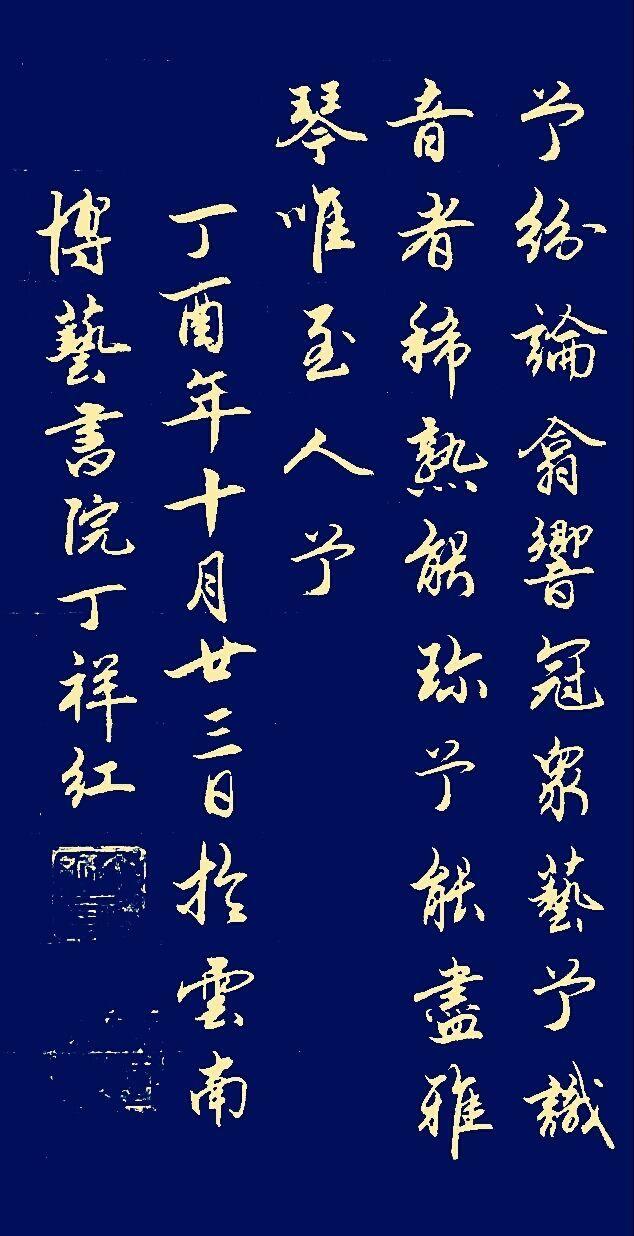 兮紛論翕響冠眾藝兮識
音者稀熟能珍兮能盡雅
琴唯至人兮
丁酉年十月廿三日於雲南
博藝書院丁祥紅